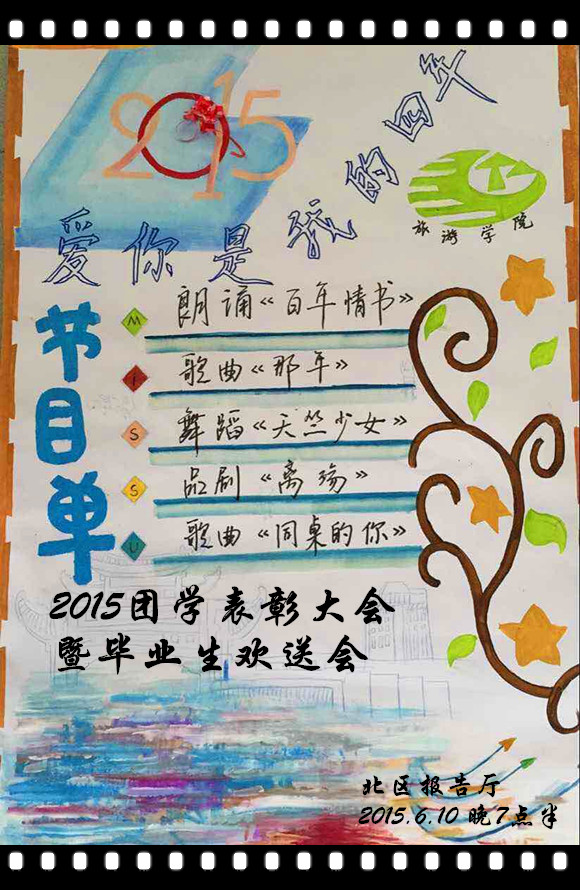 2015
爱你是我的四年
旅游学院
节目单
M 朗诵《百年情书》
I 歌曲《那年》
S 舞蹈《天竺少女》
S 品剧《离殇》
U 歌曲《同桌的你》
2015团学表彰大会
暨毕业生欢送会
北区报告厅
2015.6.10 晚7点半